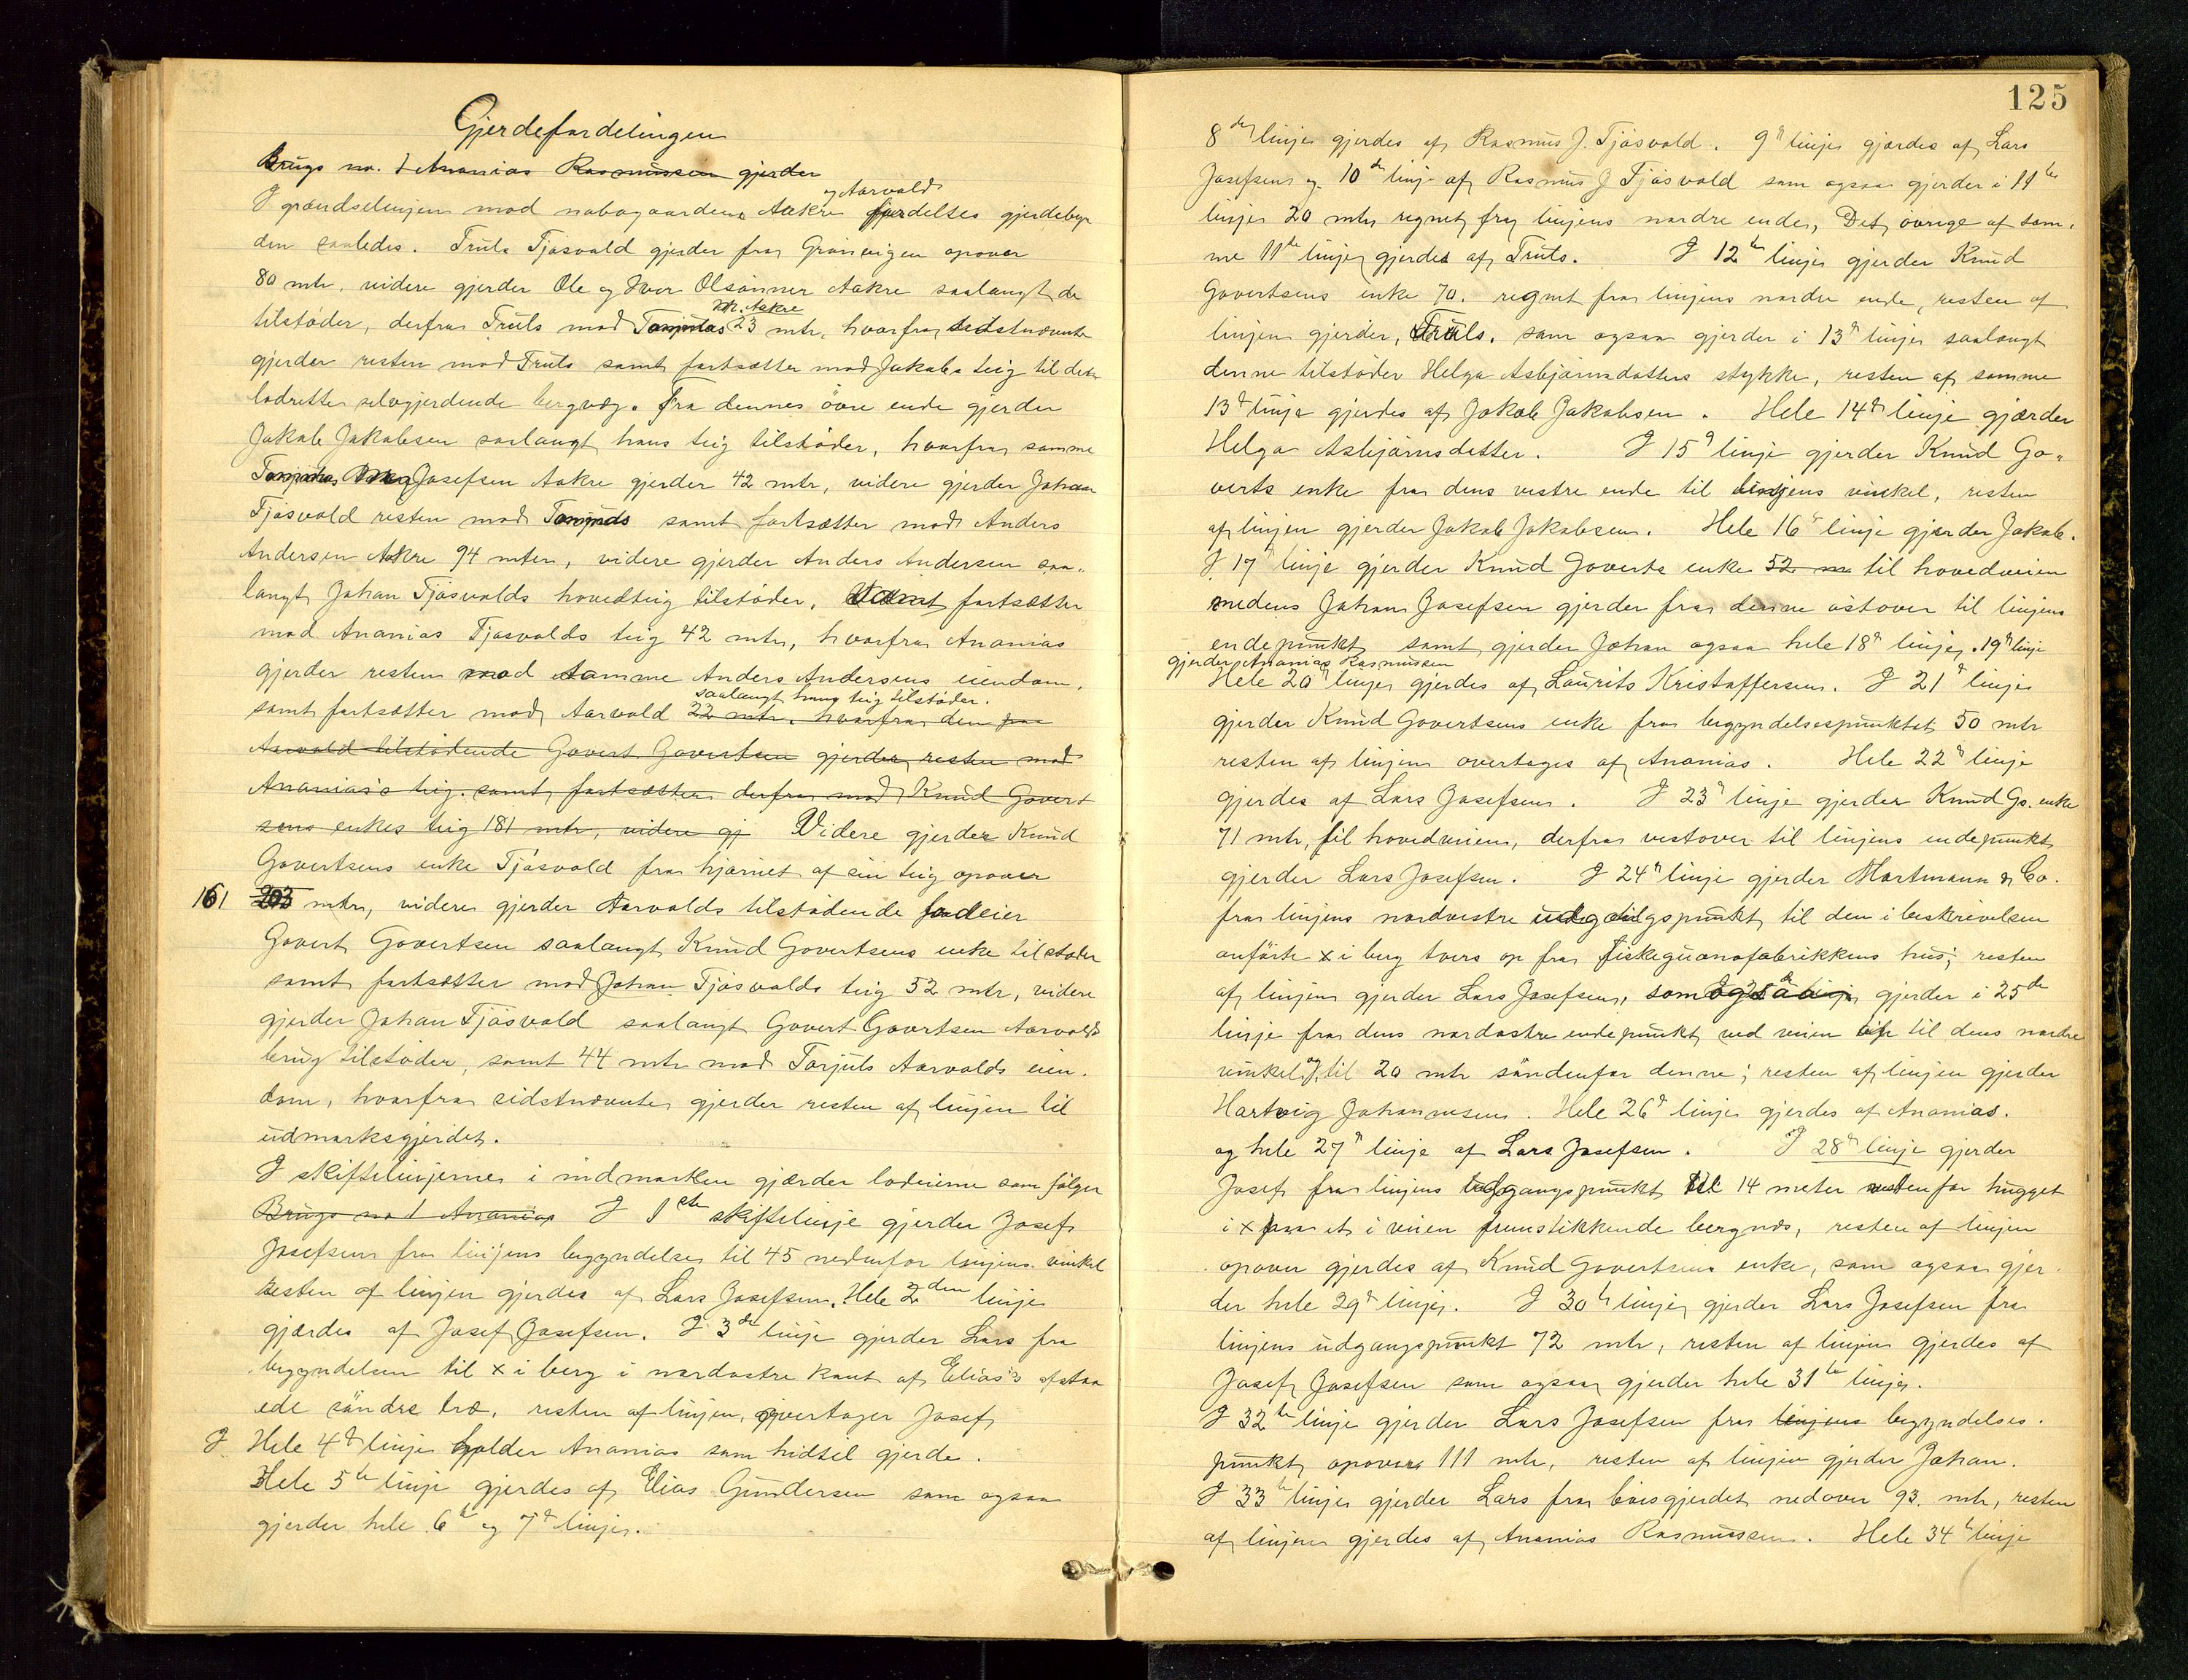 Gjerdefordelingen
Brugs no. 1 Ananias Rasmussen gjerder
og Aarvold
I grændselinjen mod nabogaardene Aakre fordeltes gjerdebyr
den saaledes. Truls Tjösvold gjerder fra Grönvigen opover
80 mtr. videre gjerder Ole og Iver Olsönner Aakre saalangt de
Aakre
tilstöder, derfra Truls mod 23 mtr, hvorfra sidstnævnte
gjerder resten mod Truls samt fortsætter mod Jakobs teig til det
lodrette selvgjerdende bergvæg. Fra dennes övre ende gjerder
Jakob Jakobsen saalangt hans teig tilstöder, hvorfra samme
Josefsen Aakre gjerder 42 mtr, videre gjerder Johan
Tjösvold resten mod samt fortsætter mod Anders
Andersen Aakre 94 mtr, videre gjerder Anders Andersen saa-
langt Johan Tjösvolds hovedteig tilstöder, samt fortsætter
mod Ananias Tjösvolds teig 42 mtr, hvorfra Ananias
gjerder resten mod samme Anders Andersens eiendom,
saalangt hans teig tilstöder.
samt fortsætter mod Aarvold 22 mtr. hvorfra den fra
Aarvold tilstödende Govert Govertsen gjerder resten mod
Ananias's teig. samt fortsætter derfra mod Knud Govert
sens enkes teig 181 mtr, videre gj Videre gjerder Knud
Govertsens enke Tjösvold fra hjörnet af sin teig opover
161 203 mtr, videre gjerder Aarvolds tilstödende lodeier
Govert Govertsen saalangt Knud Govertsens enke tilstöder
samt fortsætter mod Johan Tjösvolds teig 52 mtr, videre
gjerder Johan Tjösvold saalangt Govert Govertsen Aarvolds
brug tilstöder, samt 44 mtr mod Torjuls Aarvolds eien-
dom, hvorfra sidstnævnte gjerder resten af linjen til
udmarksgjerdet.
I skiftelinjerne i indmarken gjærder lodeierne som fölger
Brugs no 1 Ananias I 1ste skiftelinje gjerder Josef
Josefsen fra linjens begyndelse til 45 nedenfor linjens vinkel
resten af linjen gjerdes af Lars Josefsen. Hele 2den linje
gjærdes af Josef Josefsen. I 3die linje gjerder Lars fra
begyndelsen til x i berg i nordostre kant af Elias's afstaa
ede söndre træ, resten af linjen overtager Josef
I Hele 4de linje holder Ananias som hidtil gjerde.
Hele 5te linje gjerdes af Elias Gundersen som ogsaa
gjerder hele 6te og 7de linje.
125
8de linje gjerdes af Rasmus J. Tjösvold. 9de linje gjærdes af Lars
Josefsen og 10de linje af Rasmus J Tjösvold som ogsaa gjerder i 11te
linje 20 mtr regnet fra linjens nordre ende, Det övrige af sam-
me 11te linje gjerdes af Truls. I 12te linje gjerder Knud
Govertsens enke 70. regnet fra linjens nordre ende, resten af
linjen gjerder Truls. som ogsaa gjerder i 13de linje saalangt
denne tilstöder Helga Asbjörnsdatters stykke, resten af samme
13de linje gjerdes af Jakob Jakobsen. Hele 14de linje gjærder
Helga Asbjörnsdatter. I 15de linje gjerder Knud Go-
verts enke fra dens vestre ende til linjens vinkel, resten
af linjen gjerder Jakob Jakobsen. Hele 16de linje gjærder Jakob.
I 17de linje gjerder Knud Goverts enke 52 m til hovedveien
medens Johan Josefsen gjerder fra denne östover til linjens
endepunkt samt gjerder Johan ogsaa hele 18de linje. 19de linje
gjerder Ananias Rasmussen
Hele 20de linje gjerdes af Laurits Kristoffersen. I 21de linje
gjerder Knud Govertsens enke fra begyndelsespunktet 50 mtr
resten af linjen overtages af Ananias. Hele 22de linje
gjerdes af Lars Josefsen. I 23de linje gjerder Knud Go. enke
71 mtr, til hovedveien, derfra vestover til linjens endepunkt
gjerder Lars Josefsen. I 24de linje gjerder Hartmann & Co.
fra linjens nordvestre udgangspunkt til den i beskrivelsen
anförte x i berg tvers op fra fiskeguanofabrikkens hus; resten
af linjen gjerder Lars Josefsen, som gjerder i 25de
linje fra dens nordostre endepunkt ved veien til dens nordre
vinkel og til 20 mtr söndenfor denne; resten af linjen gjerder
Hartvig Johannesen. Hele 26de linje gjerdes af Ananias.
og hele 27de linje af Lars Josefsen. I 28de linje gjerder
Josef fra linjens udgangspunkt til 14 meter hugget
i x paa et i veien fremstikkende bergnös, resten af linjen
opover gjerdes af Knud Govertsens enke, som ogsaa gjer
der hele 29de linje. I 30te linje gjerder Lars Josefsen fra
linjens udgangspunkt 72 mtr, resten af linjen gjerdes af
Josef Josefsen som ogsaa gjerder hele 31te linje.
I 32te linje gjerder Lars Josefsen fra linjens begyndelses-
punkt opover 111 mtr, resten af linjen gjerder Johan.
I 33te linje gjerder Lars fra böisgjerdet nedover 93 mtr, resten
af linjen gjerdes af Ananias Rasmussen. Hele 34te linje